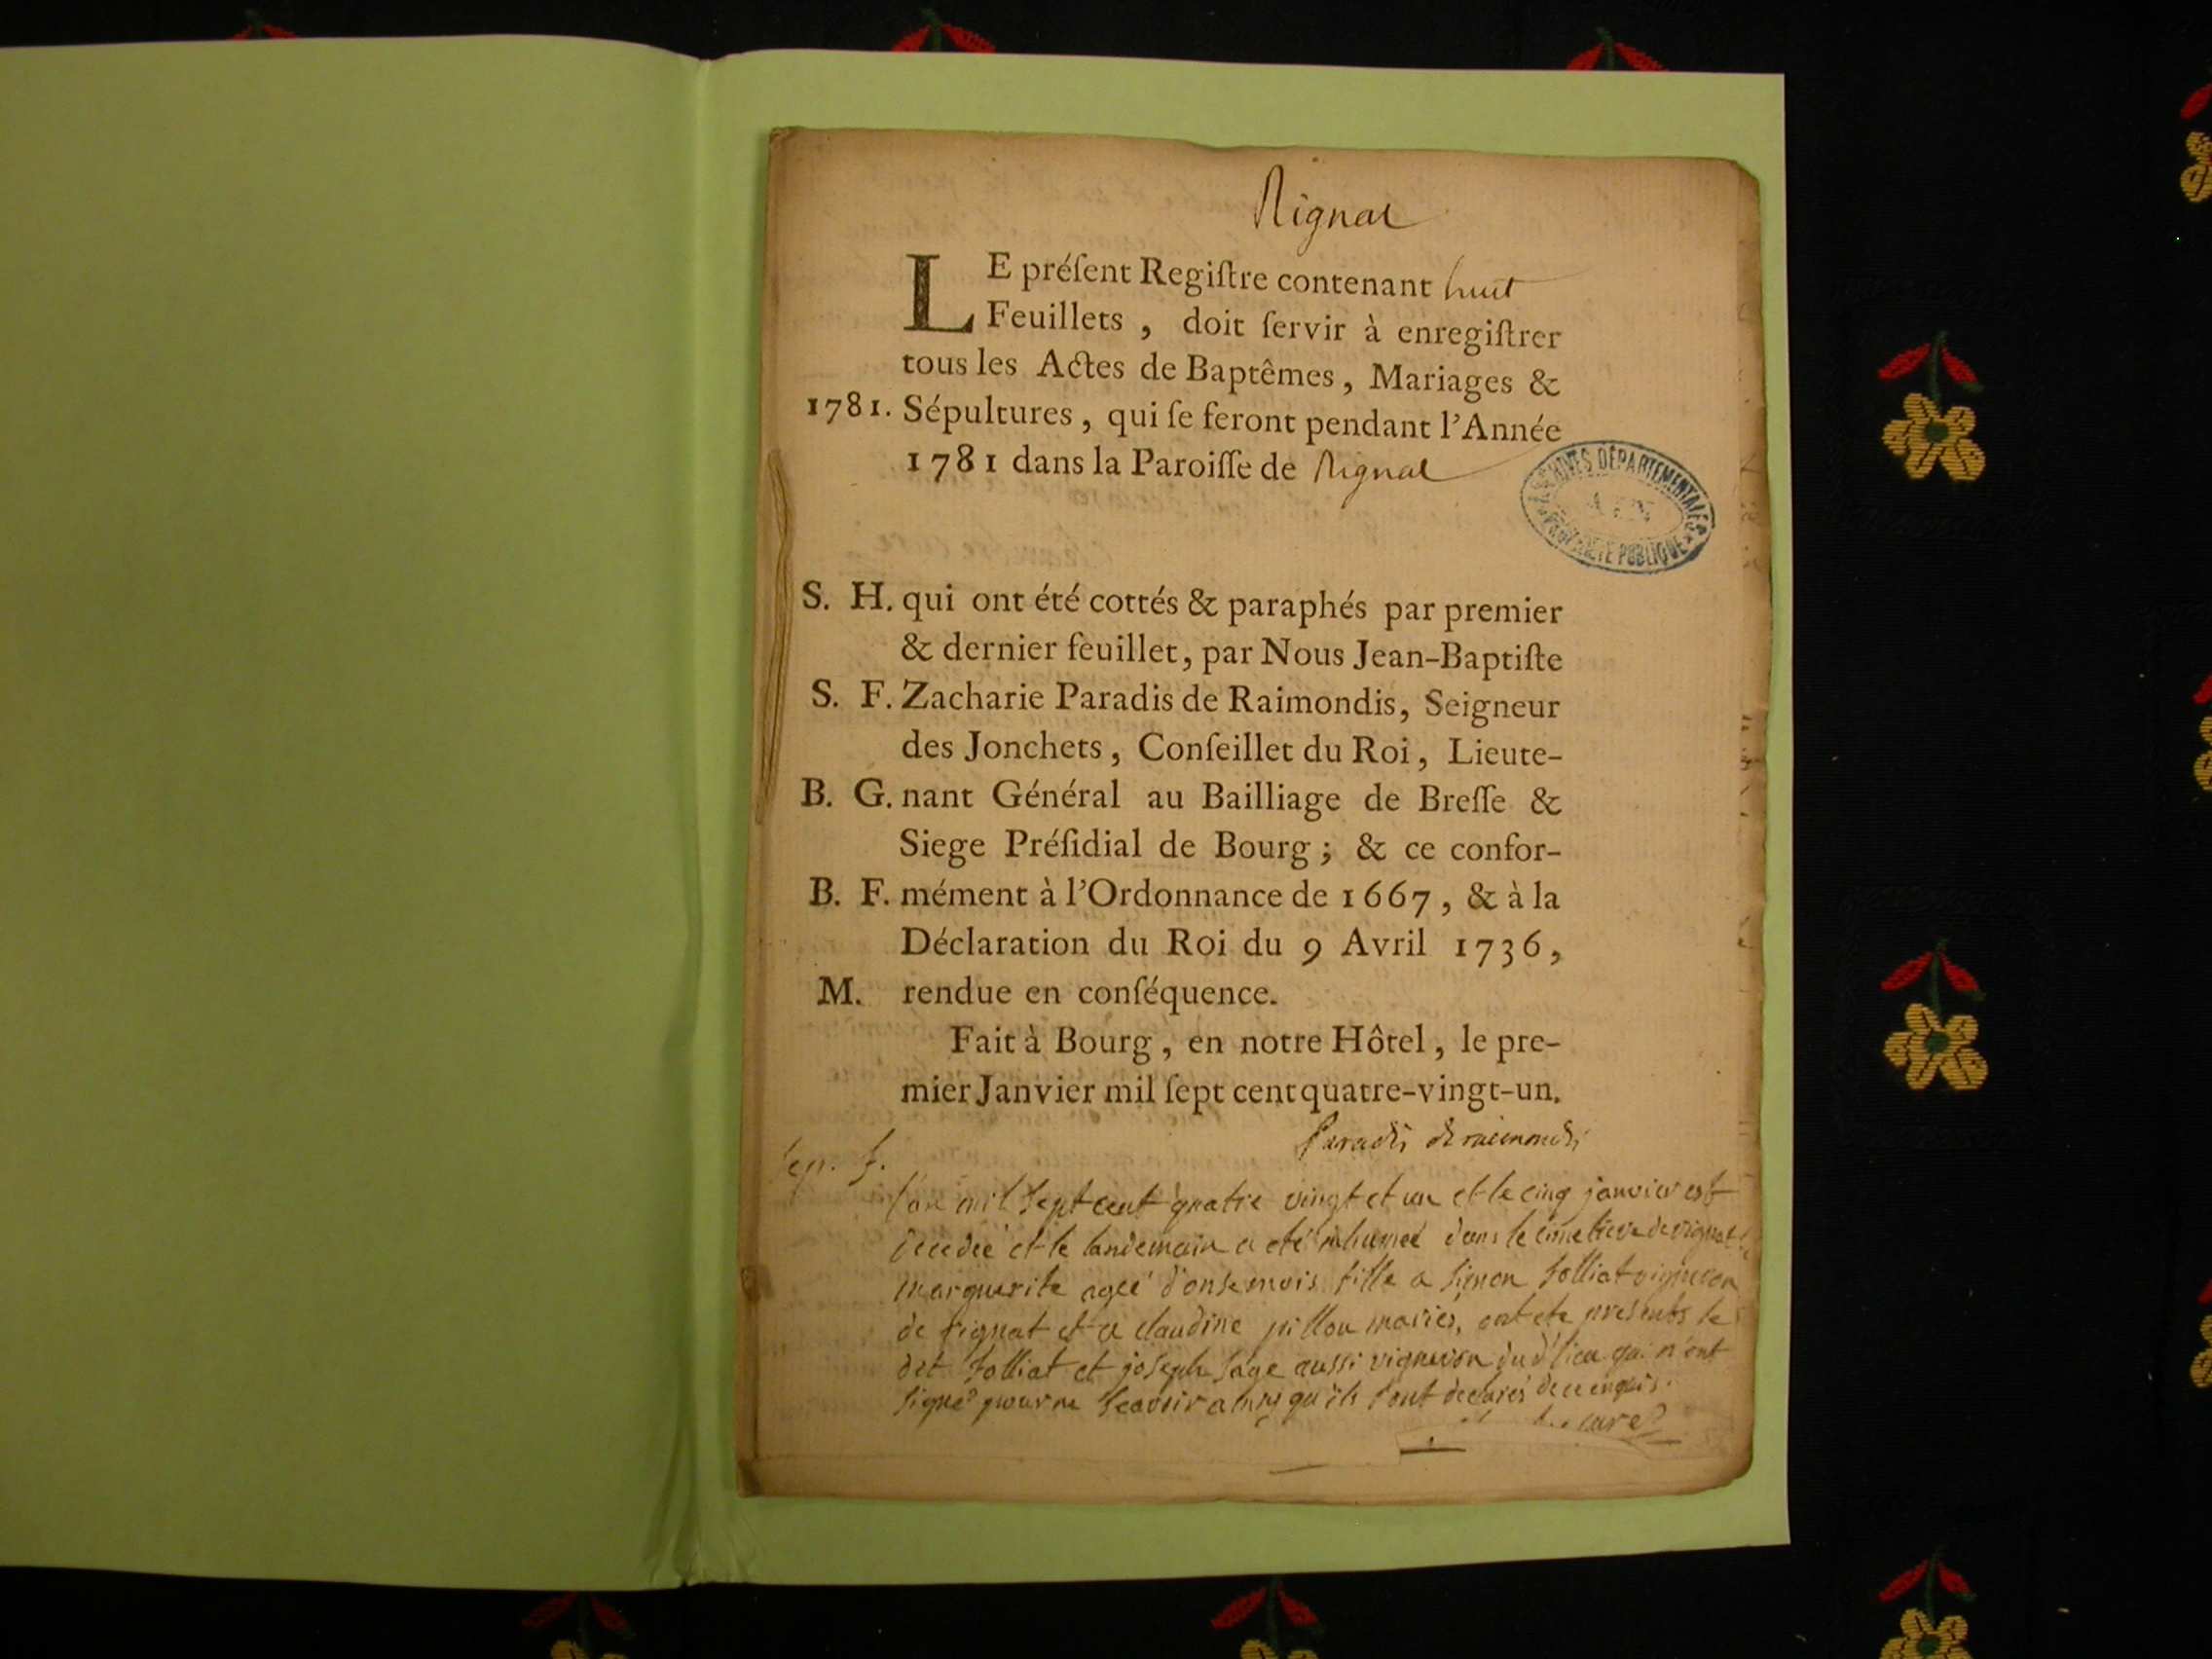 Rignat
LE préſent Regiſtre contenant huit
Feuillets , doit ſervir à enregiſtrer
tous les Actes de Baptêmes, Mariages &
1781. Sépultures, qui ſe feront pendant l'Année
1781 dans la Paroiſſe de Rignat
ARCHIVES DÉPARTEMENTALES
AIN
PROPRIÉTÉ PUBLIQUE
S. H. qui ont été cottés & paraphés par premier
& dernier feuillet, par Nous Jean-Baptiſte
S. F. Zacharie Paradis de Raimondis, Seigneur
des Jonchets, Conſeillet du Roi, Lieute-
B. G. nant Général au Bailliage de Breſſe &
Siege Préſidial de Bourg; & ce confor-
B. F. mément à l'Ordonnance de 1667, & à la
Déclaration du Roi du 9 Avril 1736,
M. rendue en conſéquence.
Fait à Bourg, en notre Hôtel, le pre-
mier Janvier mil ſept cent quatre-vingt-un.
Paradis de raimondis
Sep. f.
l'an mil sept cent quatre vingt et un et le cinq janvier est
decedée et le landemain a été inhumée dans le cimetiere de rignat
marguerite agée d'onse mois fille a simon folliat vigneron
de rignat et a claudine pillon mariés, ont ete presents le
dit folliat et joseph sage aussi vigneron dud lieu qui n'ont
signé pour ne scavoir ainsy qu'ils l'ont declaré de ce enquis.
curé